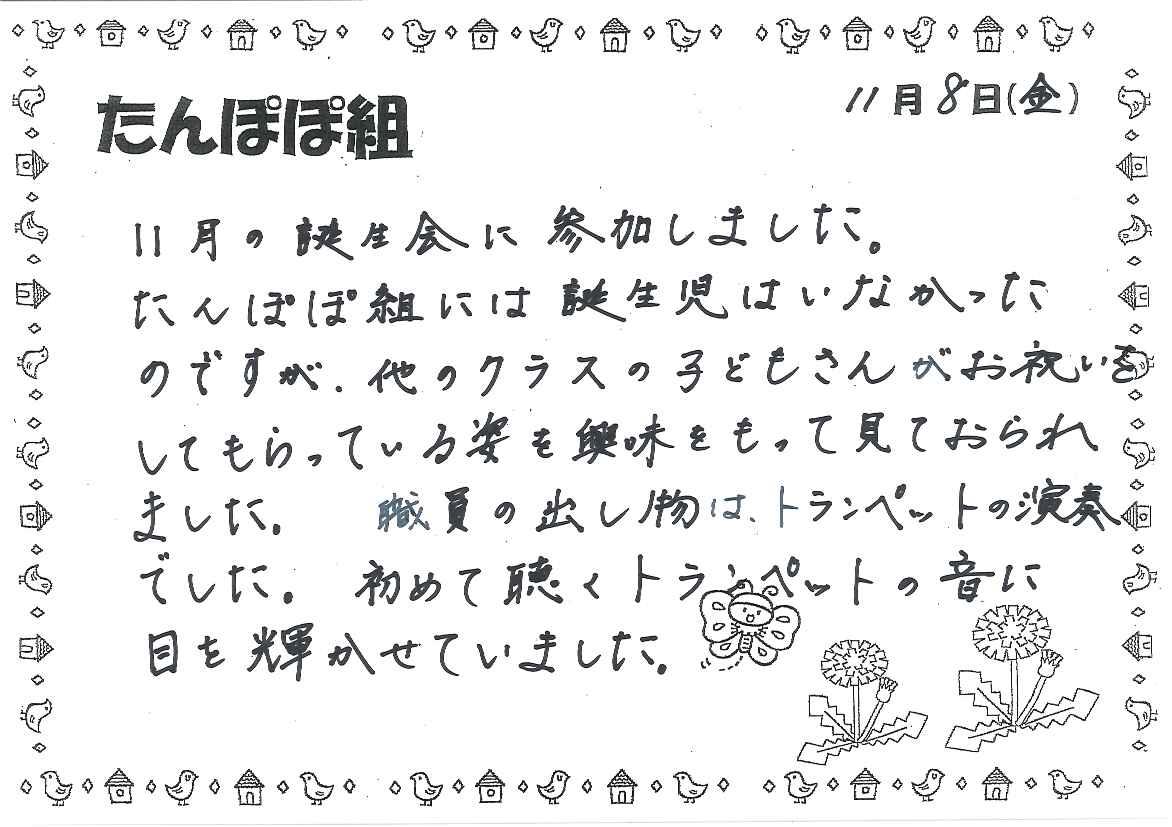 たんぽぽ組
11月8日(金)
11月の誕生会に参加しました。
たんぽぽ組には誕生児はいなかった
のですが、他のクラスの子どもさんがお祝いを
してもらっている姿を興味をもって見ておられ
ました。 職員の出し物は、トランペットの演奏
でした。 初めて聴くトランペットの音に
目を輝かせていました。